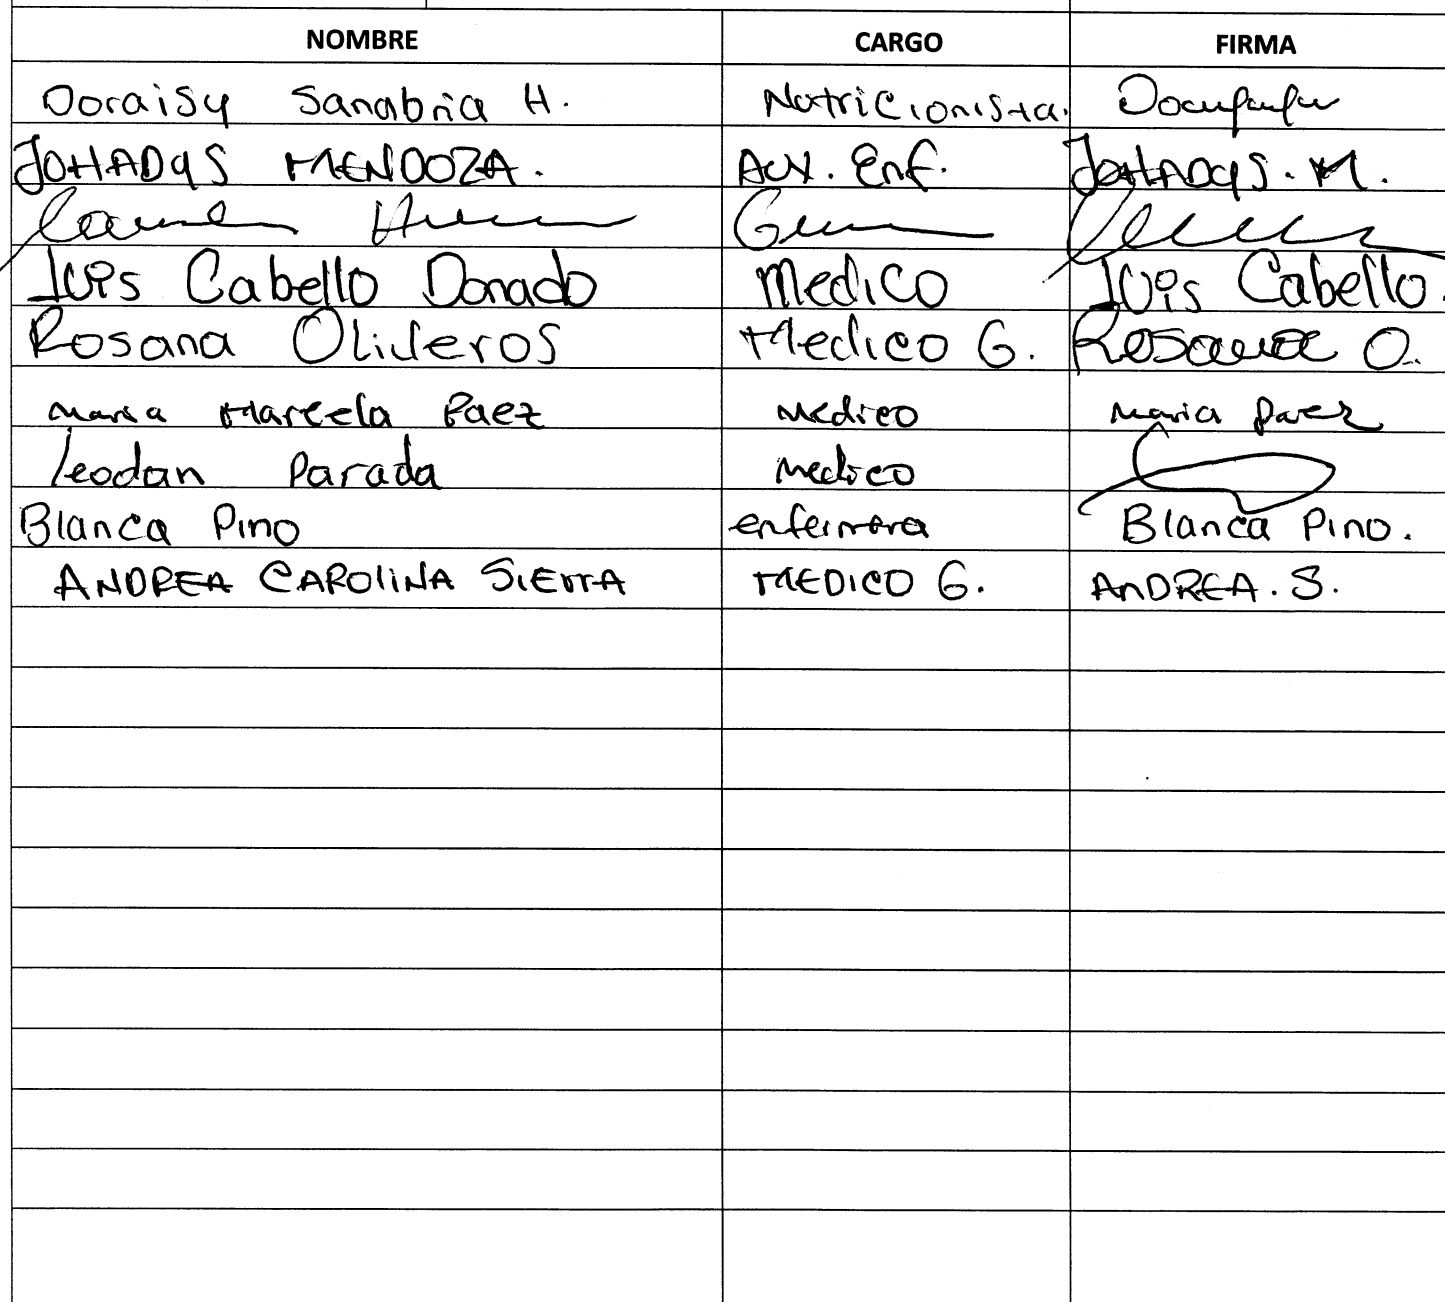 NOMBRE CARGO FIRMA
Doraisy Sanabria H. Nutricionista.
JOHADYS MENDOZA. AUX. Enf. JOHADYS. M.
Luis Cabello Donado Medico Luis Cabello.
Rosana Oliveros Medico G. Rosana O.
Maria Marcela Paez Medico Maria Paez
leodan Parada Medico
Blanca Pino enfermera Blanca Pino.
ANDREA CAROLINA SIERRA MEDICO G. ANDREA. S.